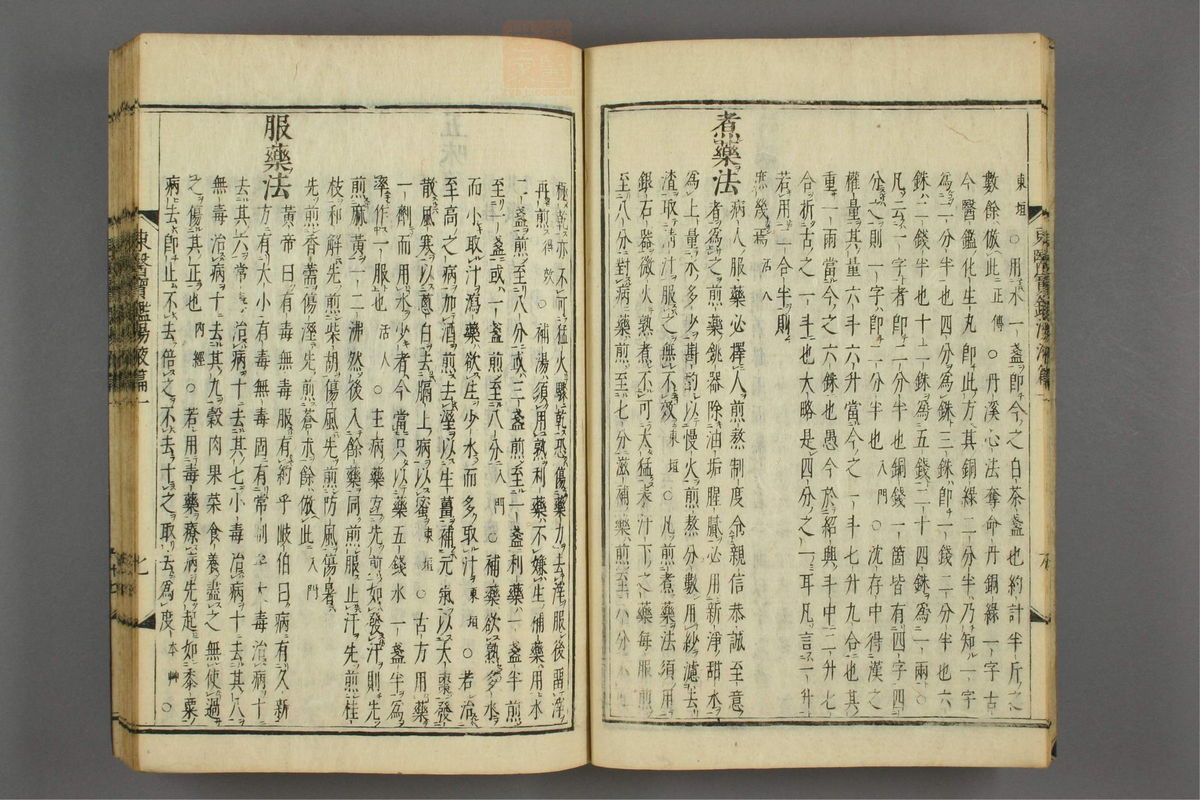 東垣○用水一盞即今之白茶盞也約計半斤之
數餘倣此正傳○丹溪心法奪命丹銅緑一字古
今醫鑑化生丸即此方其銅緑二分半乃知一字
為二分半也四分為銖三銖即一錢二分半也六
銖二錢半也十二銖為五錢二十四銖為一兩○
凡云一字者即二分半也銅錢一箇皆有四字四
分之則一字即二分半也入門○沈存中得漢之
權量其量六斗六升當今之一斗七升九合也其
重一兩當今之六銖也愚今於紹興斗中二升七
合折古之一斗也大略是四分之一耳凡言一升
若用二合半則
庶幾焉活人
煮藥法病人服藥必擇人煎熬制度令親信恭誠至意
者為之煎藥銚器除油垢腥臟必用新淨甜水
為上量水多少斟酌以慢火煎熬分數用紗濾去
渣取清汁服之無不效東垣○凡煎煮藥法須用
銀石器微火熟煮不可太猛表汗下之藥每服煎
至八分對病藥煎至七分滋補藥煎至六分
極乾亦不可猛火驟乾恐傷藥力去滓服後留滓
再煎得效○補湯須用熟利藥不嫌生補藥用水
二盞煎至八分或三盞煎至一盞利藥一盞半煎
至一盞或一盞煎至八分入門○補藥欲熟多水
而小取汁瀉藥欲生少水而多取汁東垣○若治
至高之病加酒煎去濕以生薑補元氣以大棗發
散風寒以葱白去膈上病以蜜東垣○古方用藥
一劑而用水少者今當只以藥五錢水一盞半為
率作一服也活人○主病藥宜先煎如發汗則先
煎麻黃一二沸然後入餘藥同煎服止汗先煎桂
枝和解先煎柴胡傷風先煎防風傷暑
先煎香薷傷溼先煎蒼朮餘倣此入門
服藥法黃帝曰有毒無毒服有約乎歧伯曰病有久新
方有大小有毒無毒固有常制大毒治病十
去其六常毒治病十去其七小毒治病十去其八
無毒治病十去其九穀肉果菜食養盡之無使過
之傷其正也內經○若用毒藥療病先起如黍粟
病去即止不去倍之不去十之取去為度本艸○
東醫寶鑑湯液篇一